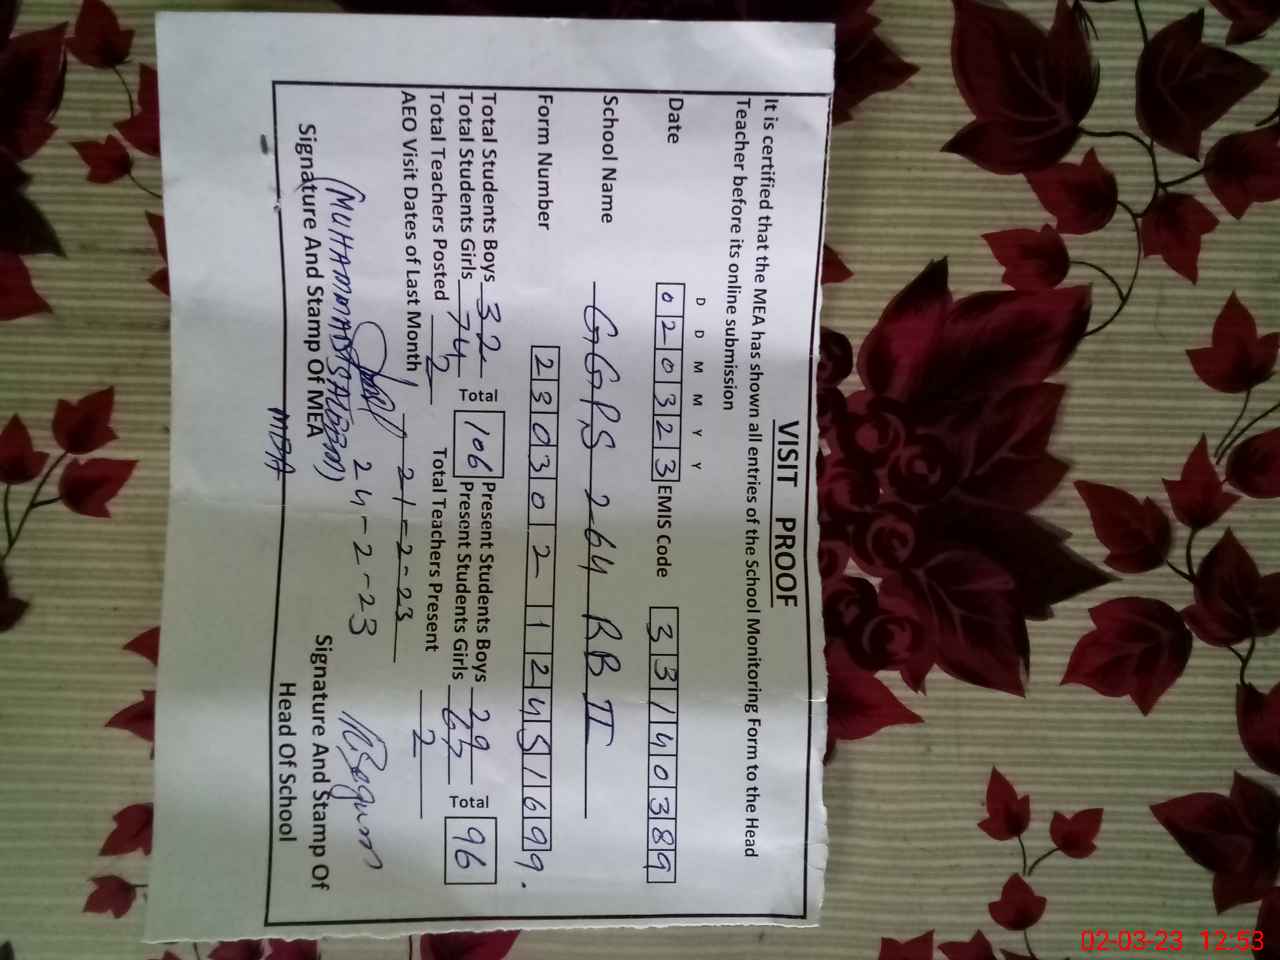 VISIT PROOF
It is certified that the MEA has shown all entries of the School Monitoring Form to the Head
Teacher before its online submission
D D M M Y Y
Date 020323 EMIS Code 33140389
School Name GGPS 264 RB II
Form Number 23030212451699.
Total Students Boys 32 Total 106 Present Students Boys 29 Total 96
Total Students Girls 74 Present Students Girls 67
Total Teachers Posted 2 Total Teachers Present 2
AEO Visit Dates of Last Month 21-2-23
24-2-23
(MUHAMMAD
Signature And Stamp Of MEA
MEA
Signature And Stamp Of
Head Of School
02-03-23 12:53